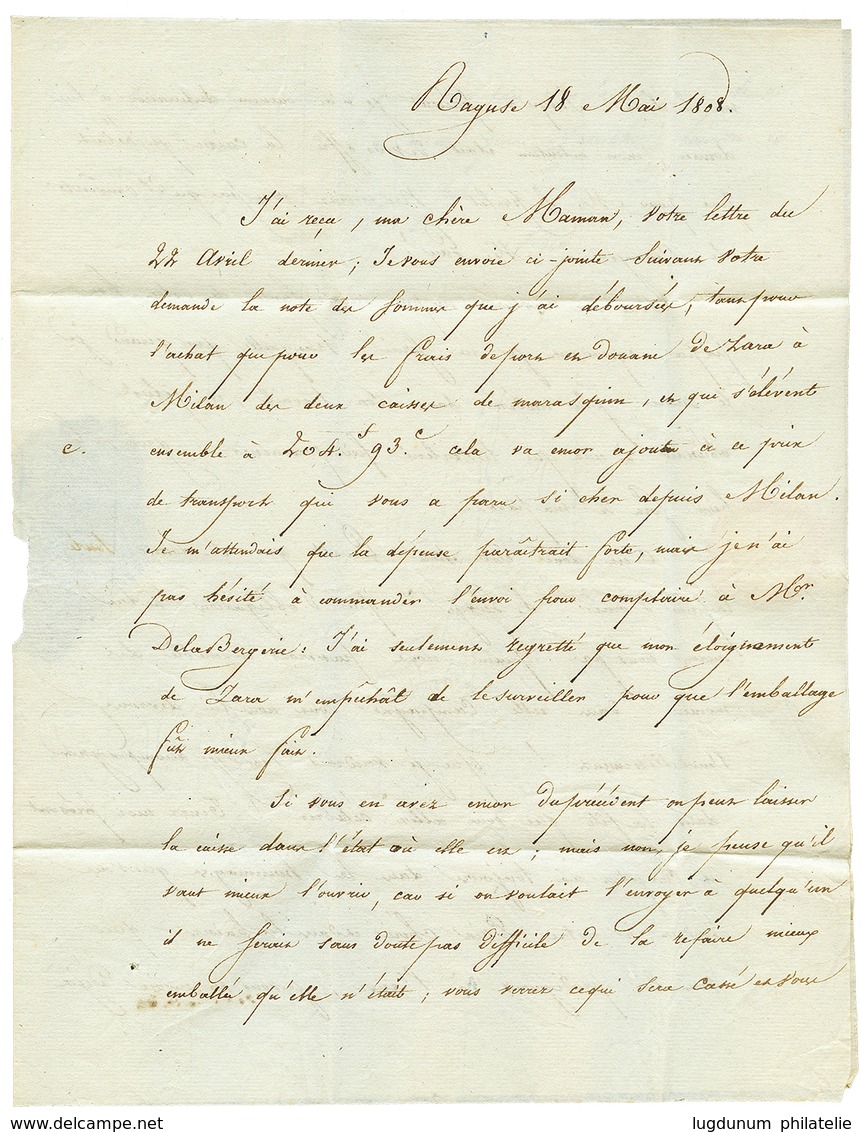 Raguse 18 Mai 1808.
J'ai reçu, ma chère Maman, votre lettre du
22 Avril dernier; Je vous envoie ci-jointe suivant votre
demande la note des sommes que j'ai déboursées, tant pour
l'achat que pour les frais de port en douane de Zara à
Milan des deux caisses de marasquin, et qui s'élèvent
c. ensemble à 204.f 93.c cela va encor ajouter à ce prix
de transport qui vous a paru si cher depuis Milan.
Je m'attendais que la dépense paraîtrait forte, mais je n'ai
pas hésité à commander l'envoi pour complaire à Mr.
DelaBergerie: J'ai seulement regretté que mon éloignement
de Zara m'empêchât de le surveiller pour que l'emballage
fût mieux fait.
Si vous en avez encor du précédent on peut laisser
la caisse dans l'état où elle est; mais non, je pense qu'il
vaut mieux l'ouvrir, car si on voulait l'envoyer à quelqu'un
il ne serait sans doute pas difficile de la refaire mieux
emballée qu'elle n'était; vous verrez ce qui sera cassé et vous
www.delcampe.net
lugdunum philatelie